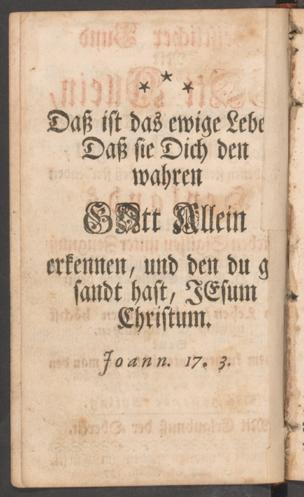 * * *
Daß ist das ewige Lebe
Daß sie Dich den
wahren
GOtt Allein
erkennen, und den du g
sandt hast, JEsum
Christum.
Joann. 17. 3.